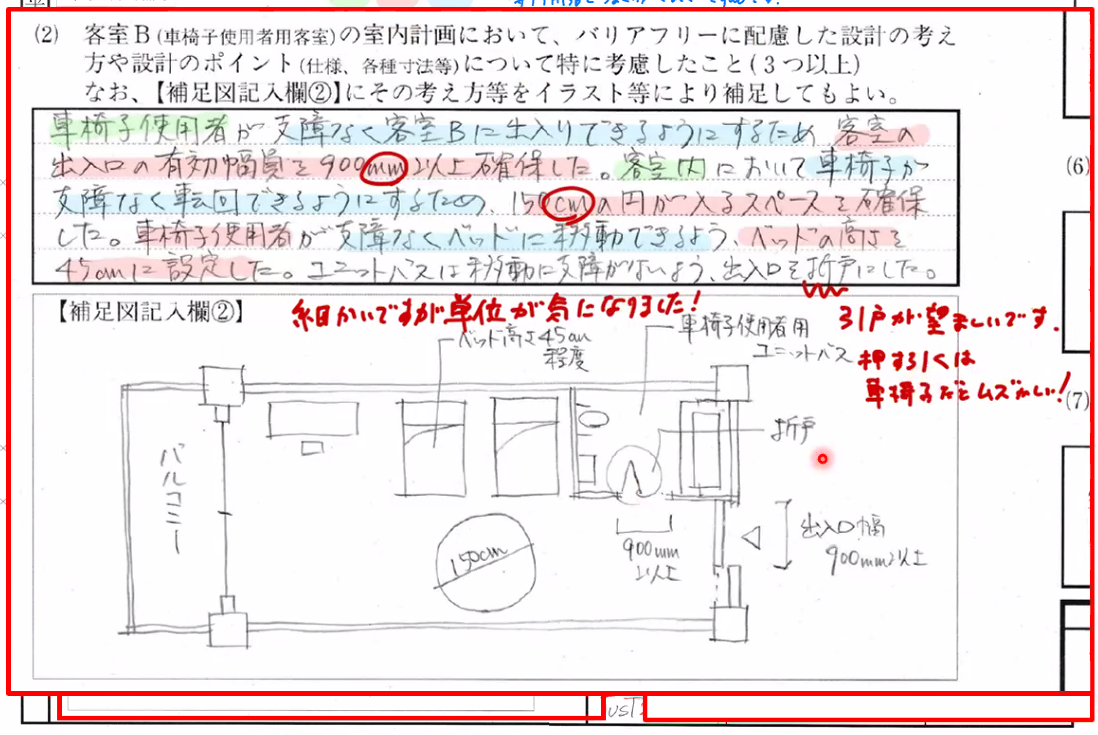 (2) 客室B(車椅子使用者用客室)の室内計画において、バリアフリーに配慮した設計の考え
方や設計のポイント(仕様、各種寸法等)について特に考慮したこと(3つ以上)
なお、【補足図記入欄②】にその考え方等をイラスト等により補足してもよい。
車椅子使用者が支障なく客室Bに出入りできるようにするため、客室の
出入口の有効幅員を900mm以上確保した。客室内において車椅子が
支障なく転回できるようにするため、150cmの円が入るスペースを確保
した。車椅子使用者が支障なくベッドに移動できるよう、ベッドの高さを
45cmに設定した。ユニットバスは移動に支障がないよう、出入口を折戸にした。
【補足図記入欄②】
細かいですが単位が気になりました!
引戸が望ましいです.
押す引くは
車椅子だとムズかしい!
ベッド高さ45cm
程度
車椅子使用者用
ユニットバス
折戸
バルコニー
150cm
900mm
以上
出入口幅
900mm以上
(6)
(7)